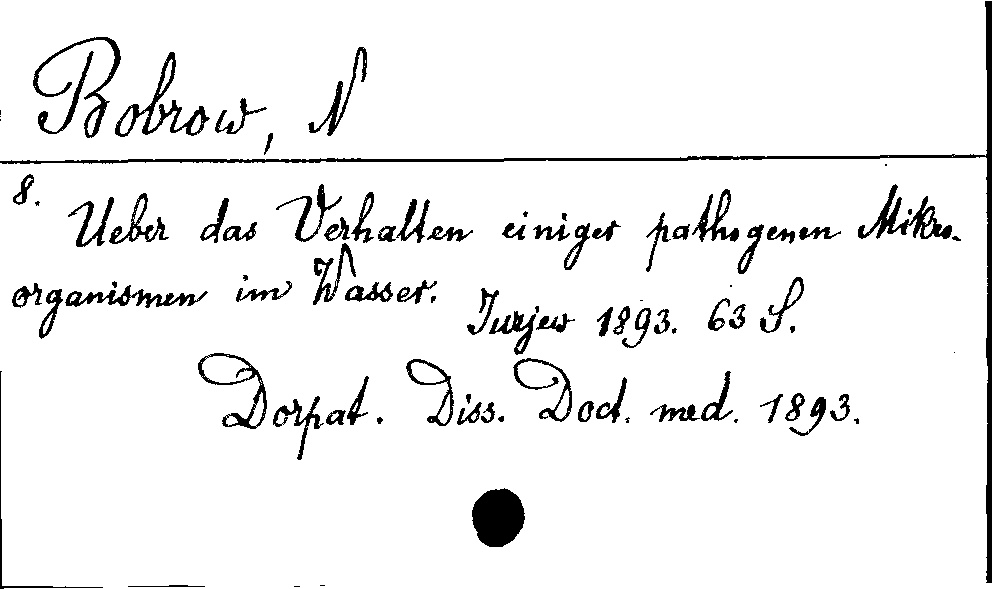 Bobrow, N
8.
Ueber das Verhalten einiger pathogenen Mikro-
organismen im Wasser.
Jurjew 1893. 63 S.
Dorpat. Diss. Doct. med. 1893.